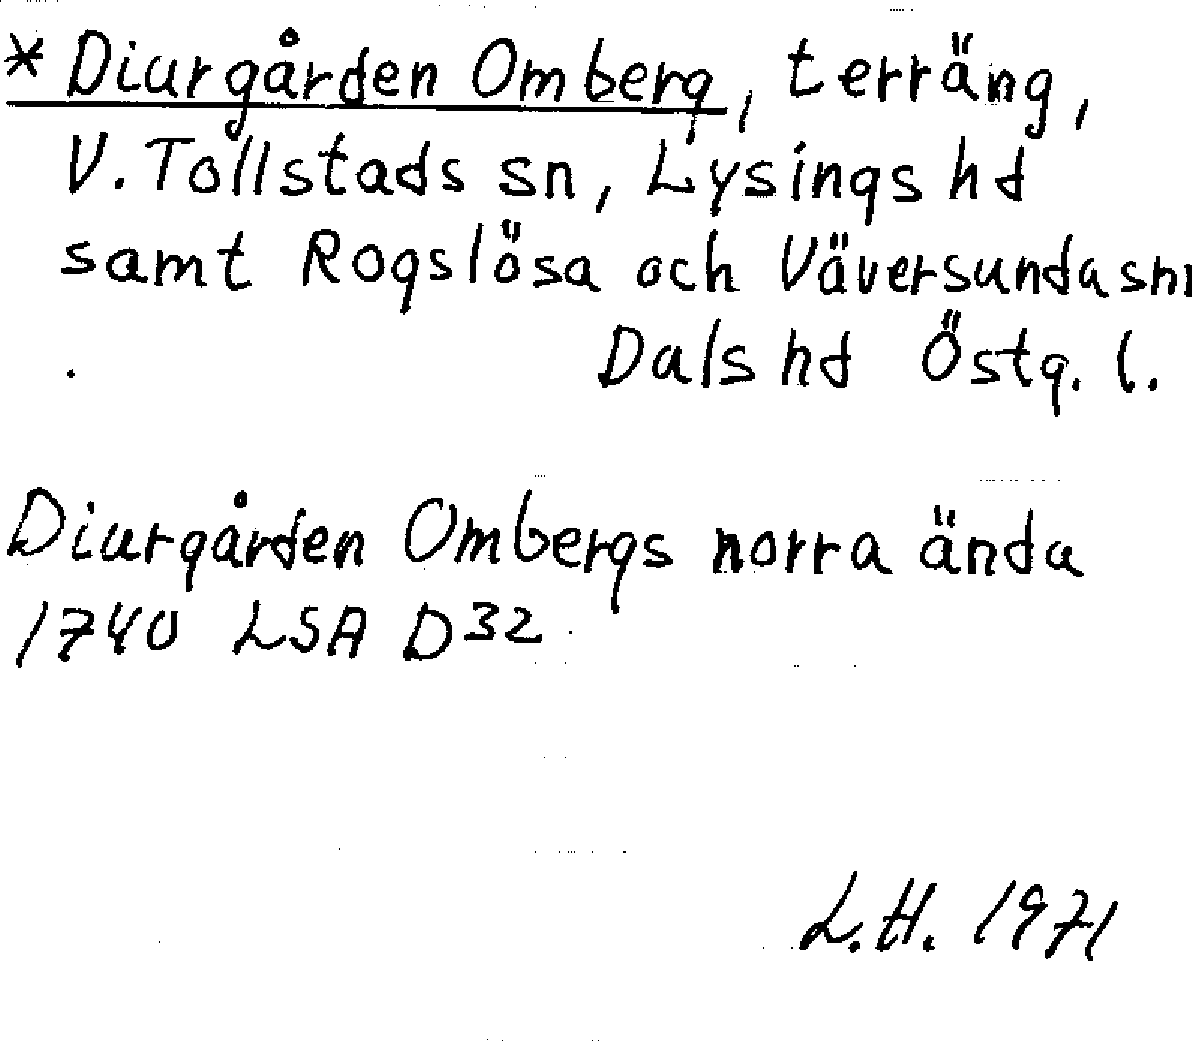 * Diurgården Omberg, terräng,
V. Tollstads sn, Lysings hd
samt Rogslösa och Väversunda snr
Dals hd Östg. l.
Diurgården Ombergs norra ända
1740 LSA D32
L.H. 1971